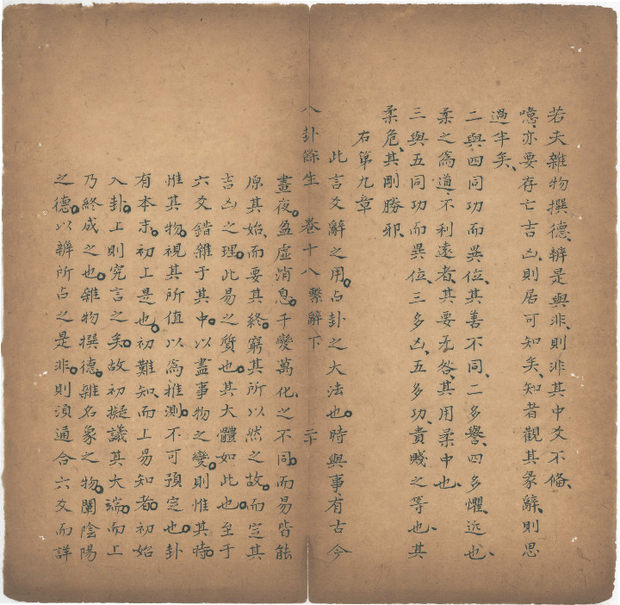 若夫雜物撰德、辨是與非、則非其中爻不備、
噫、亦要存亡吉凶、則居可知矣、知者觀其彖辭、則思
過半矣、
二與四同功而異位、其善不同、二多譽、四多懼、近也、
柔之為道、不利遠者、其要无咎、其用柔中也、
三與五同功而異位、三多凶、五多功、貴賤之等也、其
柔危、其剛勝邪、
右第九章
此言爻辭之用。占卦之大法也。時與事有古今
八卦餘生 卷十八繫辭下 二十
晝夜。盈虛消息。千變萬化。之不同。而易皆能
原其始。而要其終。窮其所以然之故。而定其
吉凶之理。此易之質也。其大體如此也。至于
六爻錯雜于其中。以盡事物之變。則惟其時。
惟其物。視其所值以為推測。不可預定也。卦
有本末。初上是也。初難知。而上易知者。初始
入卦。上則究言之矣。故初擬議其大端。而上
乃終成之也。雜物撰德。雜名象之物。闡陰陽
之德。以辨所占之是非。則須通合六爻而詳